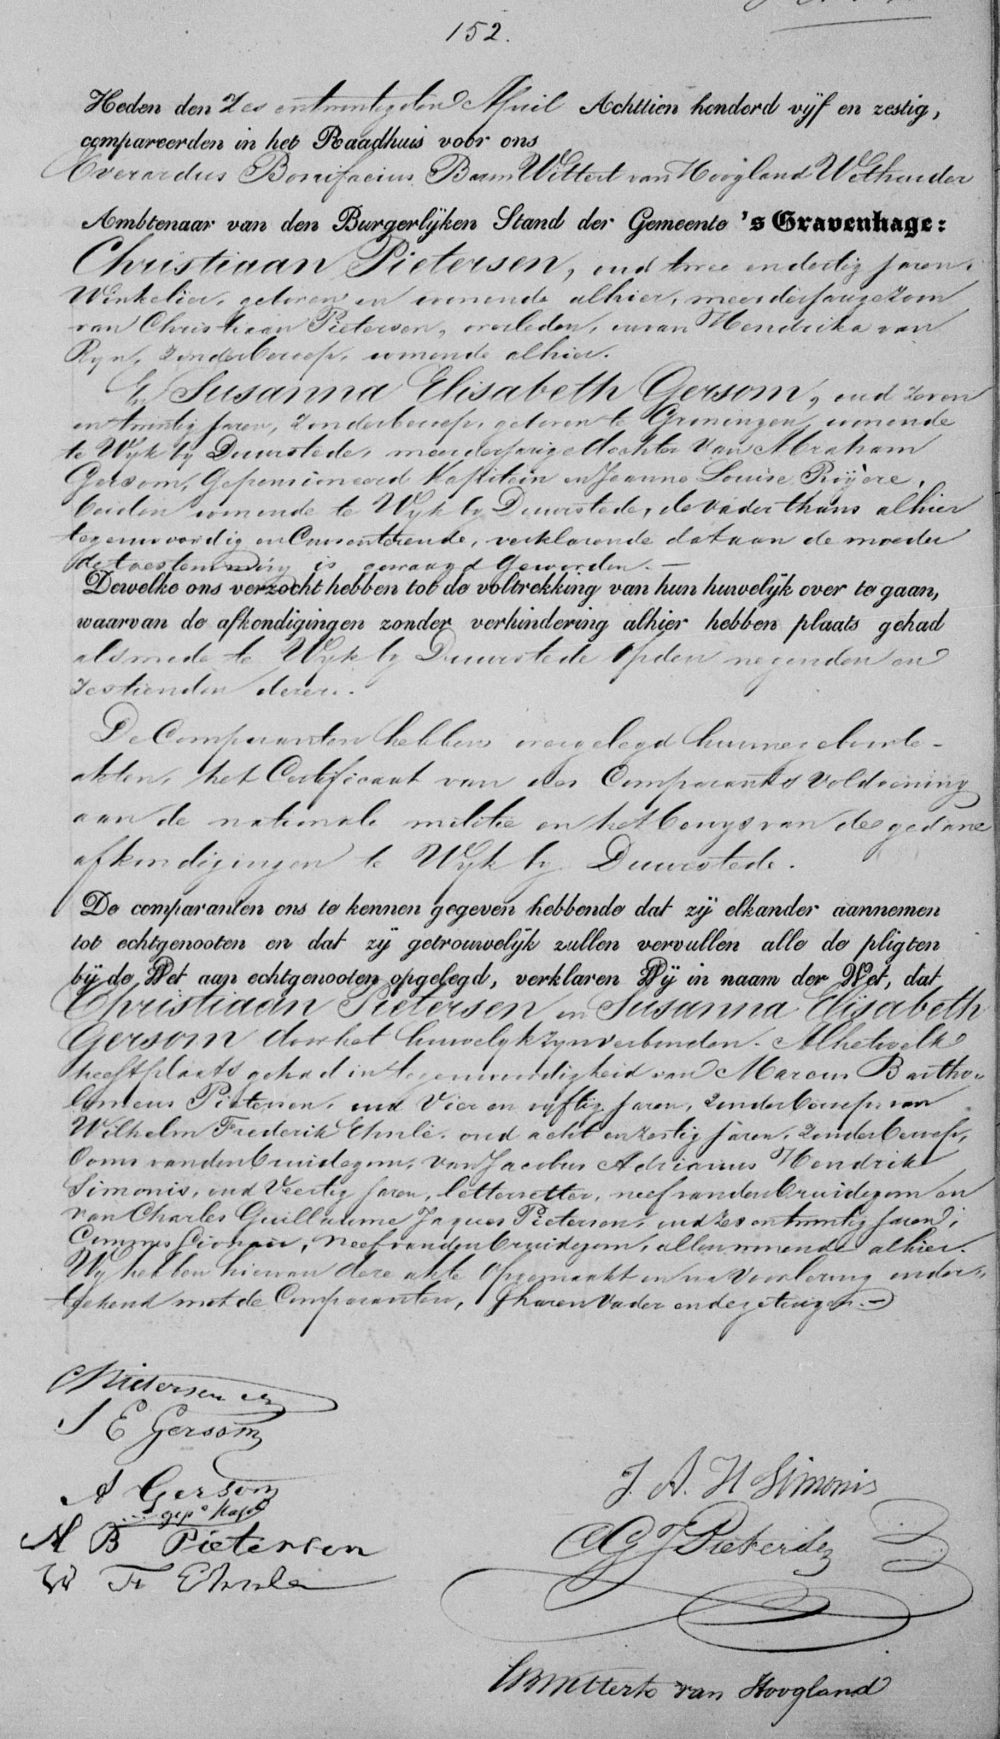 152.
Heden den Zes entwintigsten April Achttien honderd vijf en zestig,
compareerden in het Raadhuis voor ons
Everardus Bonifacius Baron Wittert van Hoogland Wethouder
Ambtenaar van den Burgerlijken Stand der Gemeente 's Gravenhage:
Christiaan Pietersen, oud twee en dertig jaren,
Winkelier, geboren en wonende alhier, meerderjarige Zoon
van Christiaan Pietersen, overleden, en van Hendrika van
Ryn, zonder beroep, wonende alhier.
En Susanna Elisabeth Gersom, oud zeven
en twintig jaren, Zonder beroep, geboren te Groningen, wonende
te Wyk by Duurstede, meerderjarige dochter van Abraham
Gersom, Gepensioneerd Kapitein en Jeanne Louise Royère,
beiden wonende te Wyk by Duurstede, de vader thans alhier
tegenwoordig en Consenterende, verklarende dat aan de moeder
de toestemming is gevraagd geworden. —
Dewelke ons verzocht hebben tot de voltrekking van hun huwelijk over te gaan,
waarvan de afkondigingen zonder verhindering alhier hebben plaats gehad
alsmede te Wyk by Duurstede op den negenden en
zestienden dezer.
De Comparanten hebben overgelegd hunne geboorte-
akten, het Certificaat van des Comparants voldoening
aan de nationale militie en het bewys van de gedane
afkondigingen te Wyk by Duurstede.
De comparanten ons te kennen gegeven hebbende dat zij elkander aannemen
tot echtgenooten en dat zij getrouwelijk zullen vervullen alle de pligten
bij de Wet aan echtgenooten opgelegd, verklaren Wij in naam der Wet, dat
Christiaan Pietersen en Susanna Elisabeth
Gersom door het huwelyk zyn verbonden. Al hetwelk
heeft plaats gehad in tegenwoordigheid van Marcus Bartho-
lomeus Pietersen, oud Vier en vyftig jaren, Zonder beroep, van
Wilhelm Frederik Ehnle, oud acht en zestig jaren, Zonder beroep,
Ooms van den bruidegom, van Jacobus Adrianus Hendrik
Simonis, oud Veertig jaren, letterzetter, neef van den bruidegom en
van Charles Guillaume Jaques Pietersen, oud zes en twintig jaren,
Commissionair, Neef van den bruidegom, allen wonende alhier.
Wy hebben hiervan deze akte opgemaakt en na Voorlezing onder-
tekend met de Comparanten, haren Vader en de getuigen. —
C Pietersen
S E Gersom
A Gersom
gep. Kapt
M B Pietersen
W F Ehnle
J. A. H Simonis
C G J Pietersen
EBWittert van Hoogland